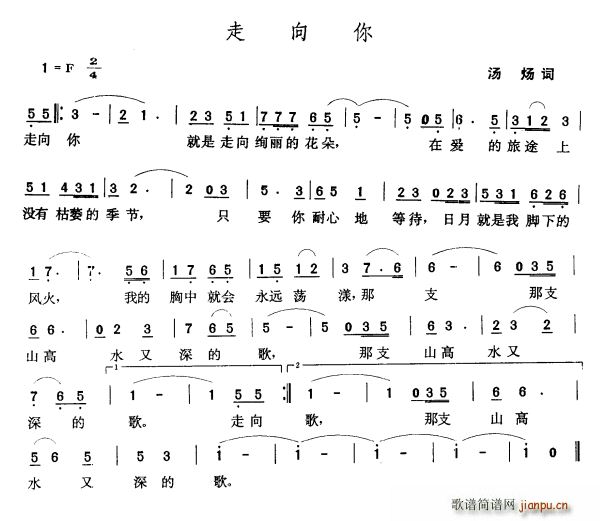 走 向 你
1 = F 2/4
汤 炀 词
5 5 |: 3 - | 2 1 . | 2 3 5 1 | 7 7 7 6 5 | 5 - | 5 0 5 | 6 . 5 | 3 1 2 3 |
走向 你 就是 走向 绚丽的 花朵, 在 爱 的 旅途 上
5 1 4 3 1 | 3 2 . | 2 0 3 | 5 . 3 | 6 5 1 | 4 2 3 0 2 3 | 5 3 1 6 2 6 |
没有 枯萎的 季 节, 只 要 你 耐心 地 等待, 日月 就是我 脚下的
1 7 . | 7 . 5 6 | 1 7 6 5 | 1 5 1 2 | 3 7 . 6 | 6 - | 6 0 3 5 |
风火, 我的 胸中 就会 永远 荡 漾, 那 支 那支
6 6 . | 0 2 3 | 7 6 5 | 5 - | 5 0 3 5 | 6 6 . | 2 3 2 |
山高 水 又 深 的 歌, 那支 山高 水 又
1 2
7 6 5 | 1 - | 1 5 5 :| 1 - | 1 0 3 5 | 6 6 . |
深 的 歌。 走向 歌, 那支 山高
5 6 5 | 5 6 . 5 | 1 - | 1 - | 1 - | 1 0 ‖
水 又 深 的 歌。
歌谱简谱网
jianpu.cn